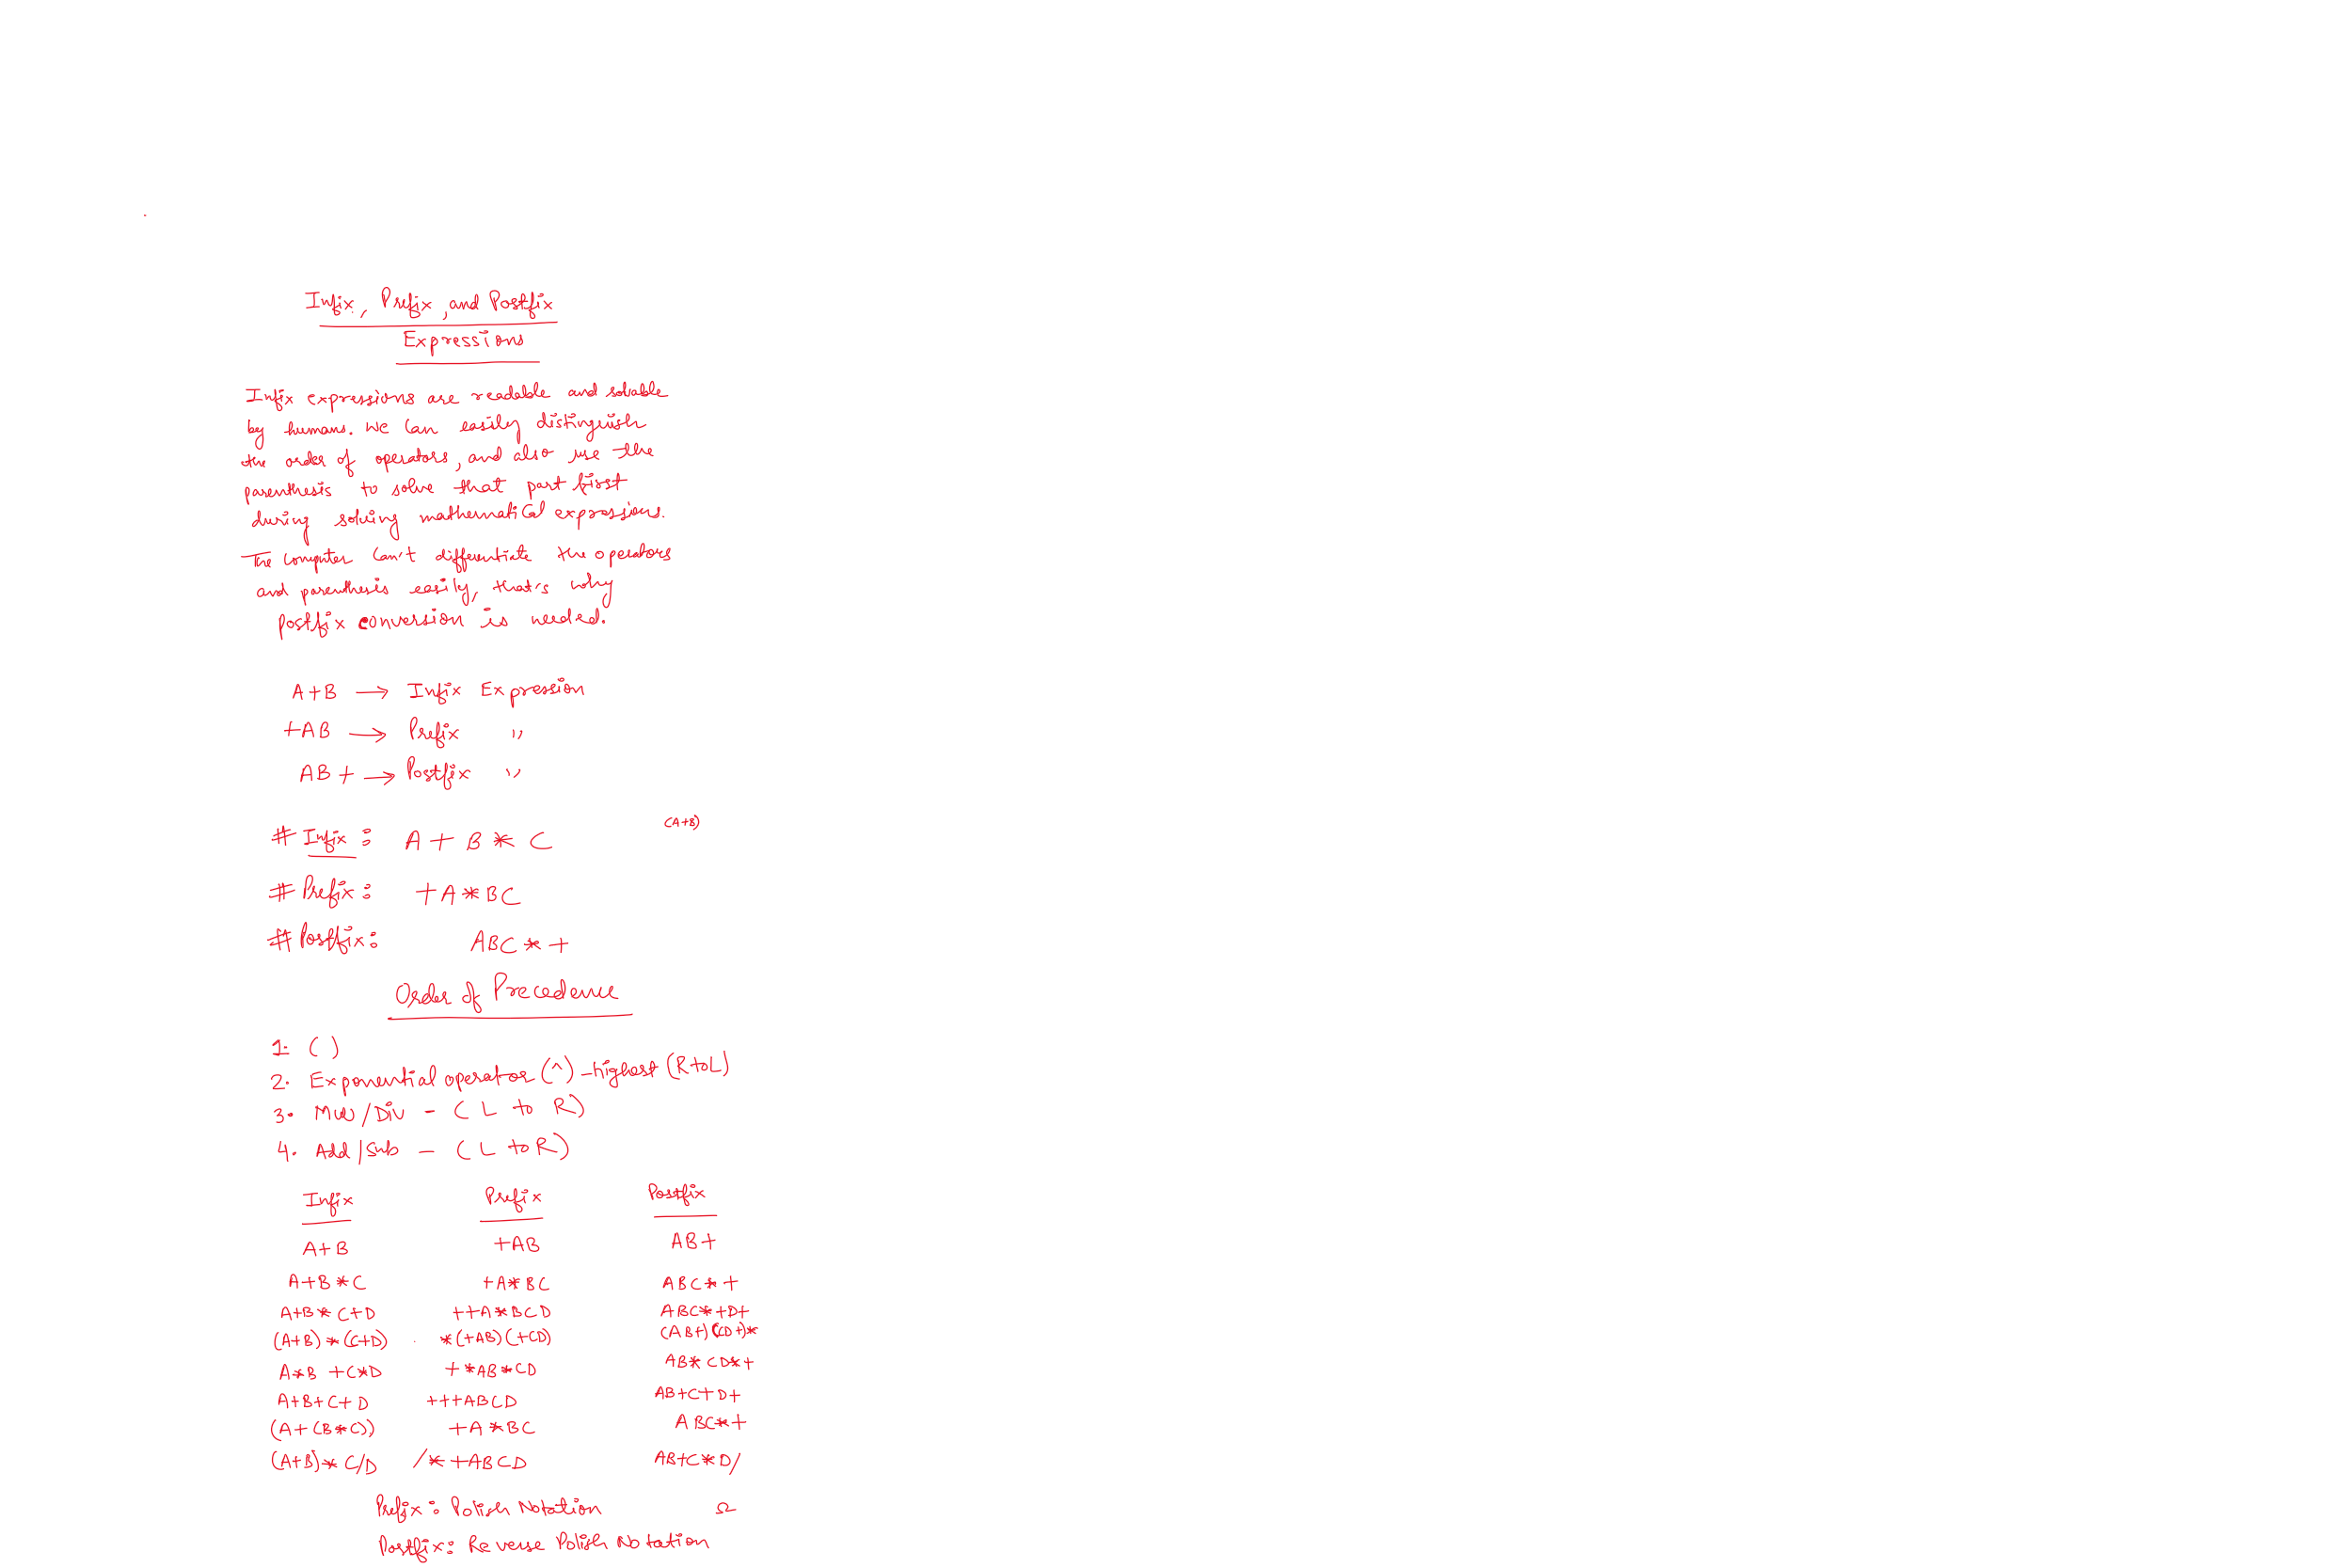 Infix, Prefix, and Postfix
Expressions
Infix expressions are readable and solvable
by humans. We can easily distinguish
the order of operators, and also use the
parenthesis to solve that part first
during solving mathematical expressions.
The computer can't differentiate the operators
and parenthesis easily, that's why
postfix conversion is needed.
A+B → Infix Expression
+AB → Prefix "
AB+ → Postfix "
(A+B)
# Infix: A + B * C
# Prefix: +A*BC
# Postfix: ABC*+
Order of Precedence
1. ( )
2. Exponential operator (^) - highest (R to L)
3. Mul/Div - (L to R)
4. Add/Sub - (L to R)
Infix Prefix Postfix
A+B +AB AB+
A+B*C +A*BC ABC*+
A+B*C+D ++A*BCD ABC*+D+
(A+B)*(C+D) *(+AB)(+CD) (AB+)(CD+)*
A*B+C*D +*AB*CD AB*CD*+
A+B+C+D +++ABCD AB+C+D+
(A+(B*C)) +A*BC ABC*+
(A+B)*C/D /*+ABCD AB+C*D/
Prefix: Polish Notation
Postfix: Reverse Polish Notation